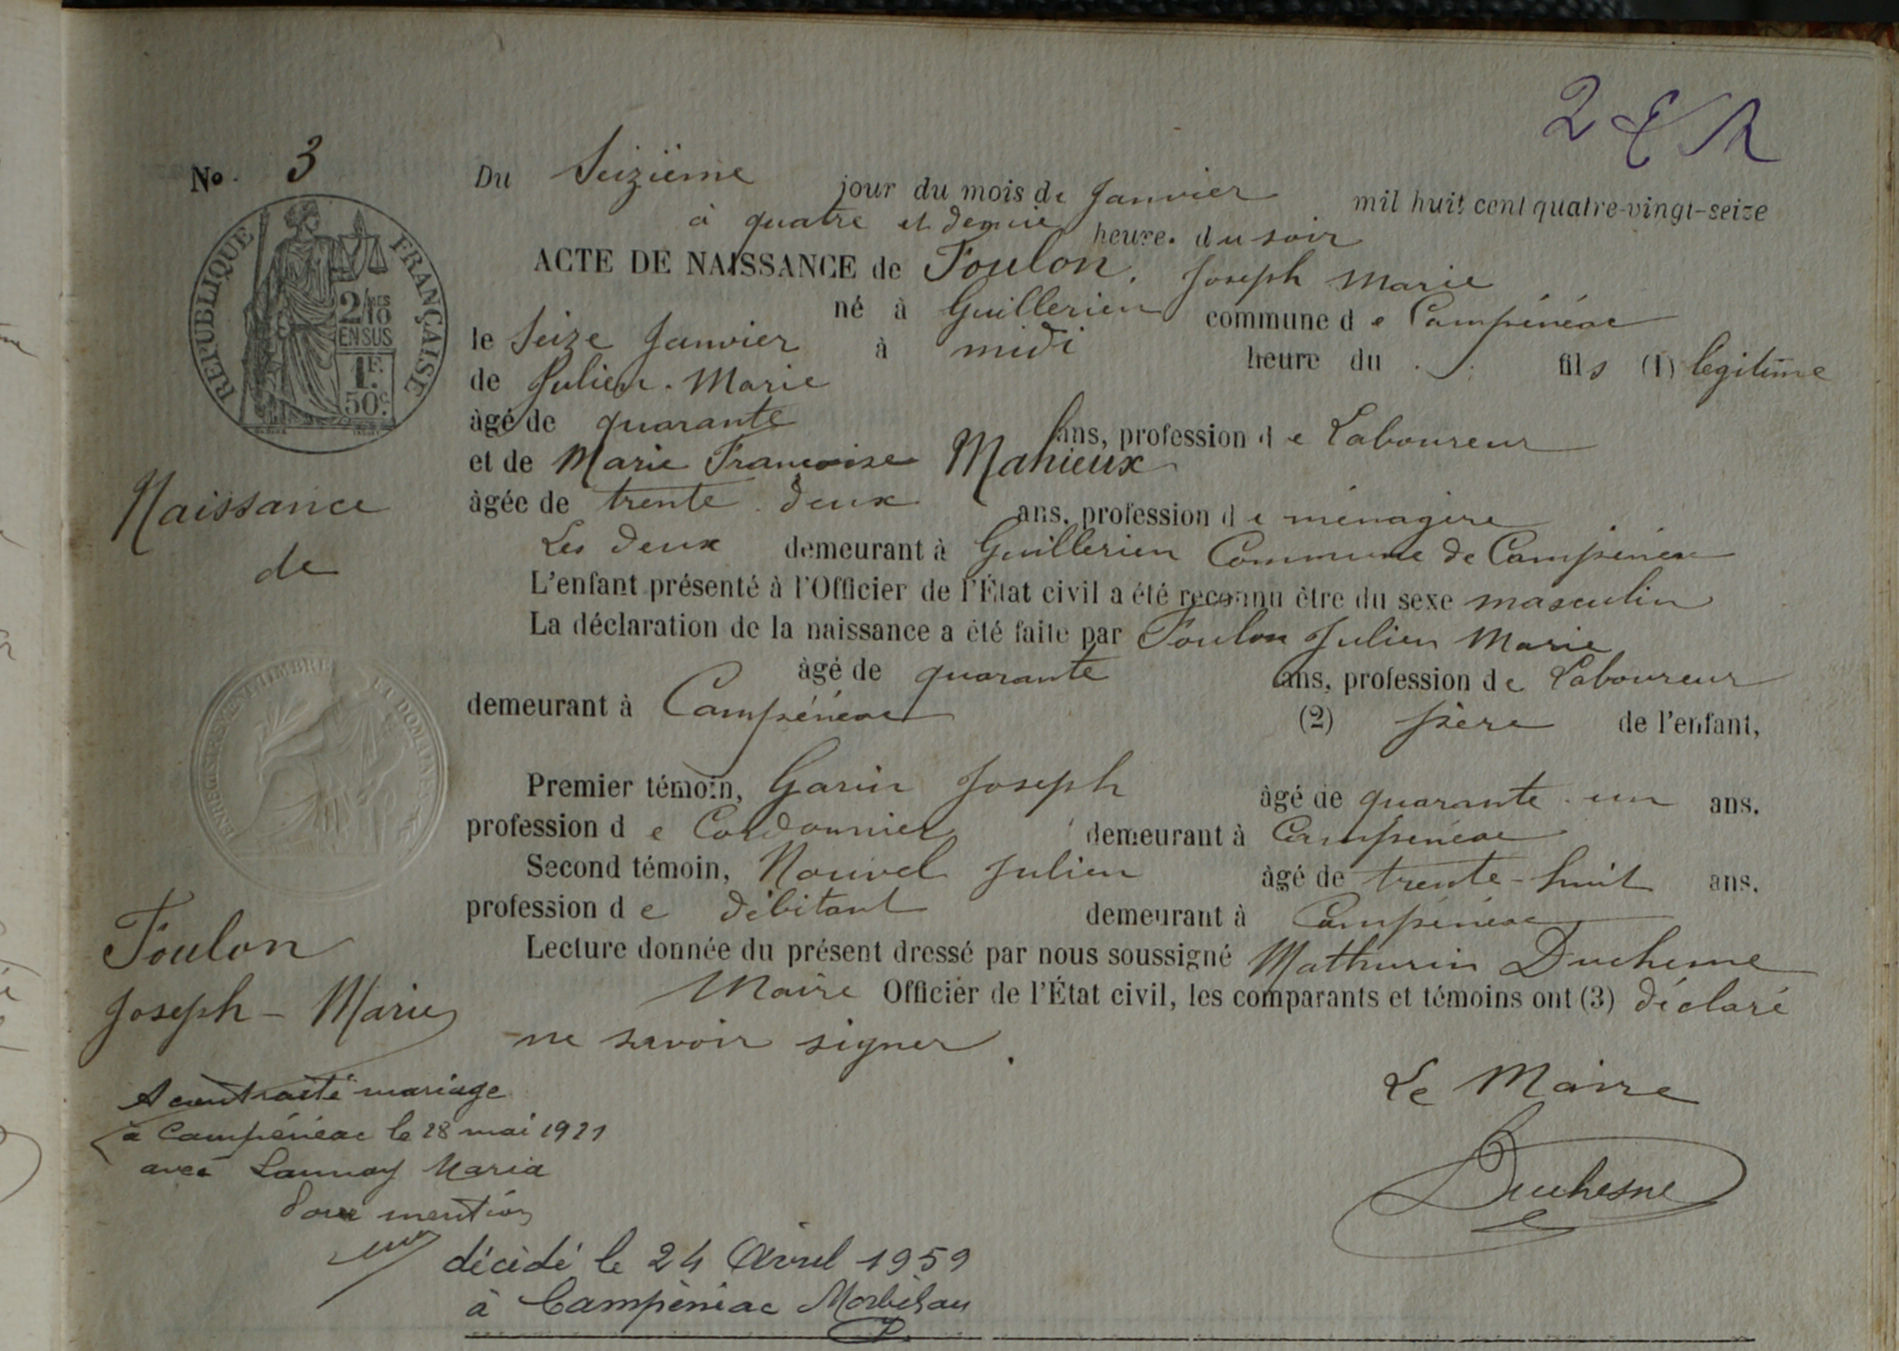 2 E
No. 3
Du Seizième jour du mois de Janvier mil huit cent quatre-vingt-seize
à quatre et demie heure. du soir
ACTE DE NAISSANCE de Foulon. Joseph Marie
né à Guillerien commune de Campénéac
le Seize Janvier à midi heure du . fils (1) legitime
de Julien. Marie
âgé de quarante ans, profession de Laboureur
et de Marie Francoise Mahieux
âgée de trente deux ans, profession de ménagère
Les deux demeurant à Guillerien Commune de Campénéac
L'enfant présenté à l'Officier de l'État civil a été reconnu être du sexe masculin
La déclaration de la naissance a été faite par Foulon Julien Marie
âgé de quarante ans, profession de Laboureur
demeurant à Campénéac (2) père de l'enfant,
Premier témoin, Garin Joseph âgé de quarante-un ans.
profession de Cordonnier demeurant à Campénéac
Second témoin, Nouvel Julien âgé de trente-huit ans.
profession de débitant demeurant à Campénéac
Lecture donnée du présent dressé par nous soussigné Mathurin Duchesne
Maire Officier de l'État civil, les comparants et témoins ont (3) déclaré
ne savoir signer.
Le Maire
Duchesne
RÉPUBLIQUE FRANÇAISE
2/10
EN SUS
1F.
50c.
Naissance
de
Foulon
Joseph - Marie
A contracté mariage
à Campénéac le 28 mai 1921
avec Launay Maria
Pour mention
décédé le 24 Avril 1959
à Campénéac Morbihan